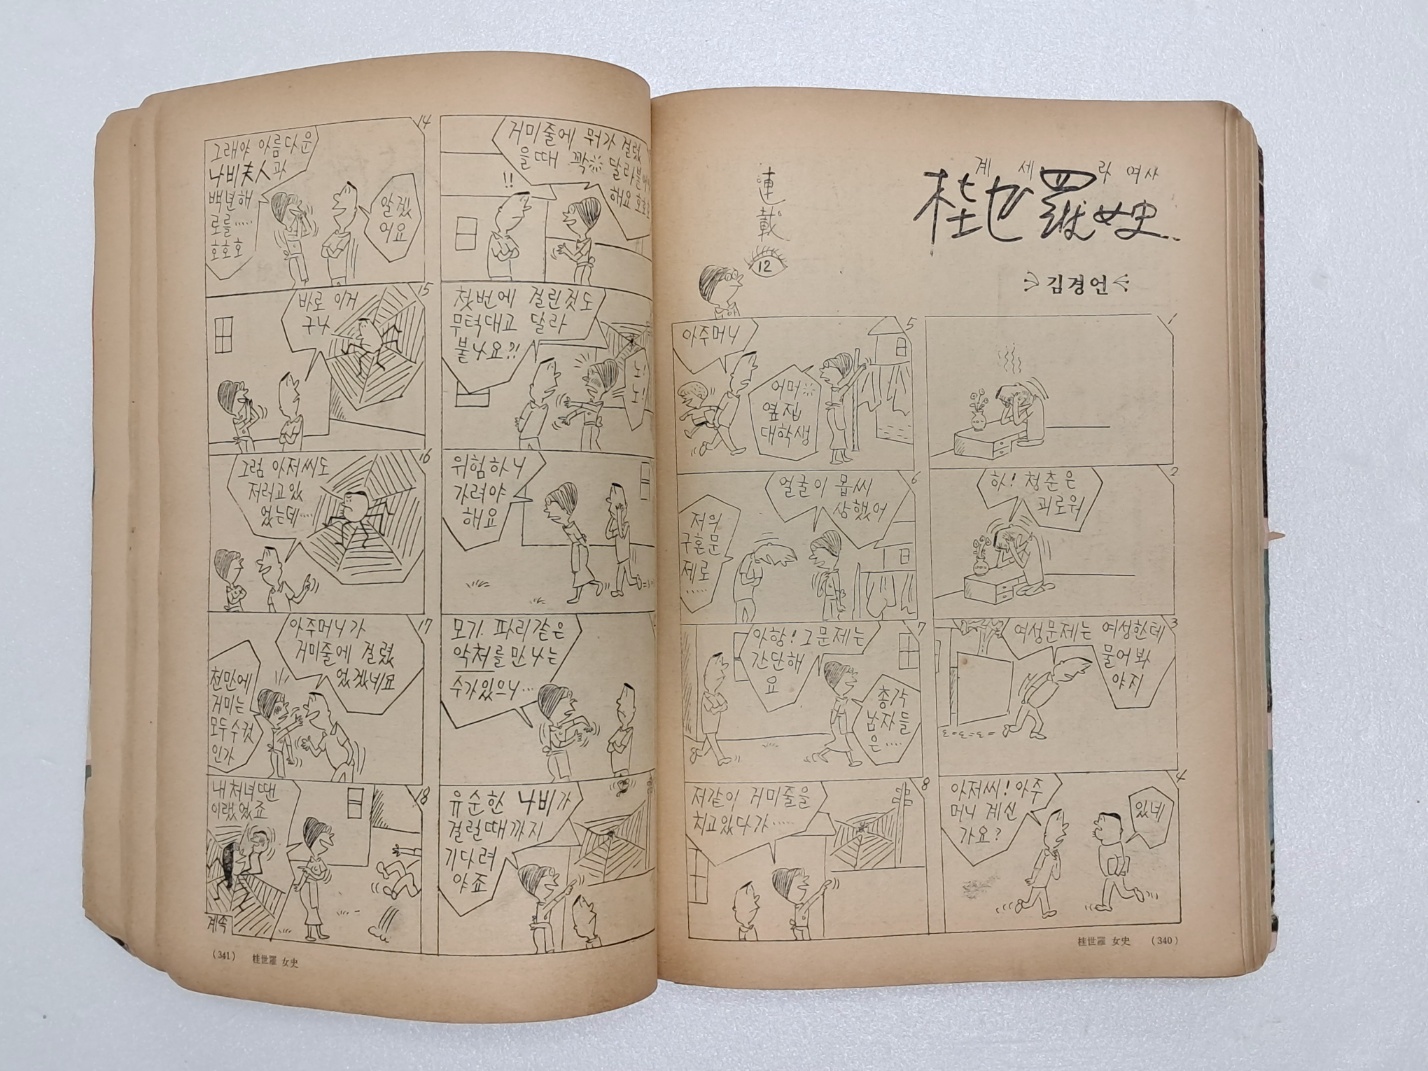 連載
12
계 세 라 여사
桂世羅女史
김경언
1
2
하! 청춘은
괴로워
3
여성문제는 여성한테
물어봐
야지
4
아저씨! 아주
머니 계신
가요?
있네
5
아주머니
어머
옆집
대학생
6
얼굴이 몹씨
상했어
저의
구혼문
제로
.....
7
아항! 그문제는
간단해
요
총각
남자들
은....
8
저같이 거미줄을
치고있다가.....
桂世羅 女史 (340)
거미줄에 뭐가 걸렸
을때 꽉 달라붙어
해요
!!
첫번에 걸린것도
무턱대고 달라
붙나요?!
노!
노!
위험하니
가려야
해요
모기 파리같은
악처를 만나는
수가있으니...
유순한 나비가
걸릴때까지
기다려
야죠
14
그래야 아름다운
나비夫人과
백년해
로를.....
호호호
알겠
어요
15
바로 이거
구나
16
그럼 아저씨도
저러고있
었는데....
17
아주머니가
거미줄에 걸렸
었겠네요
천만에
거미는
모두수컷
인가
18
내처녀땐
이랬었죠
계속
(341) 桂世羅 女史